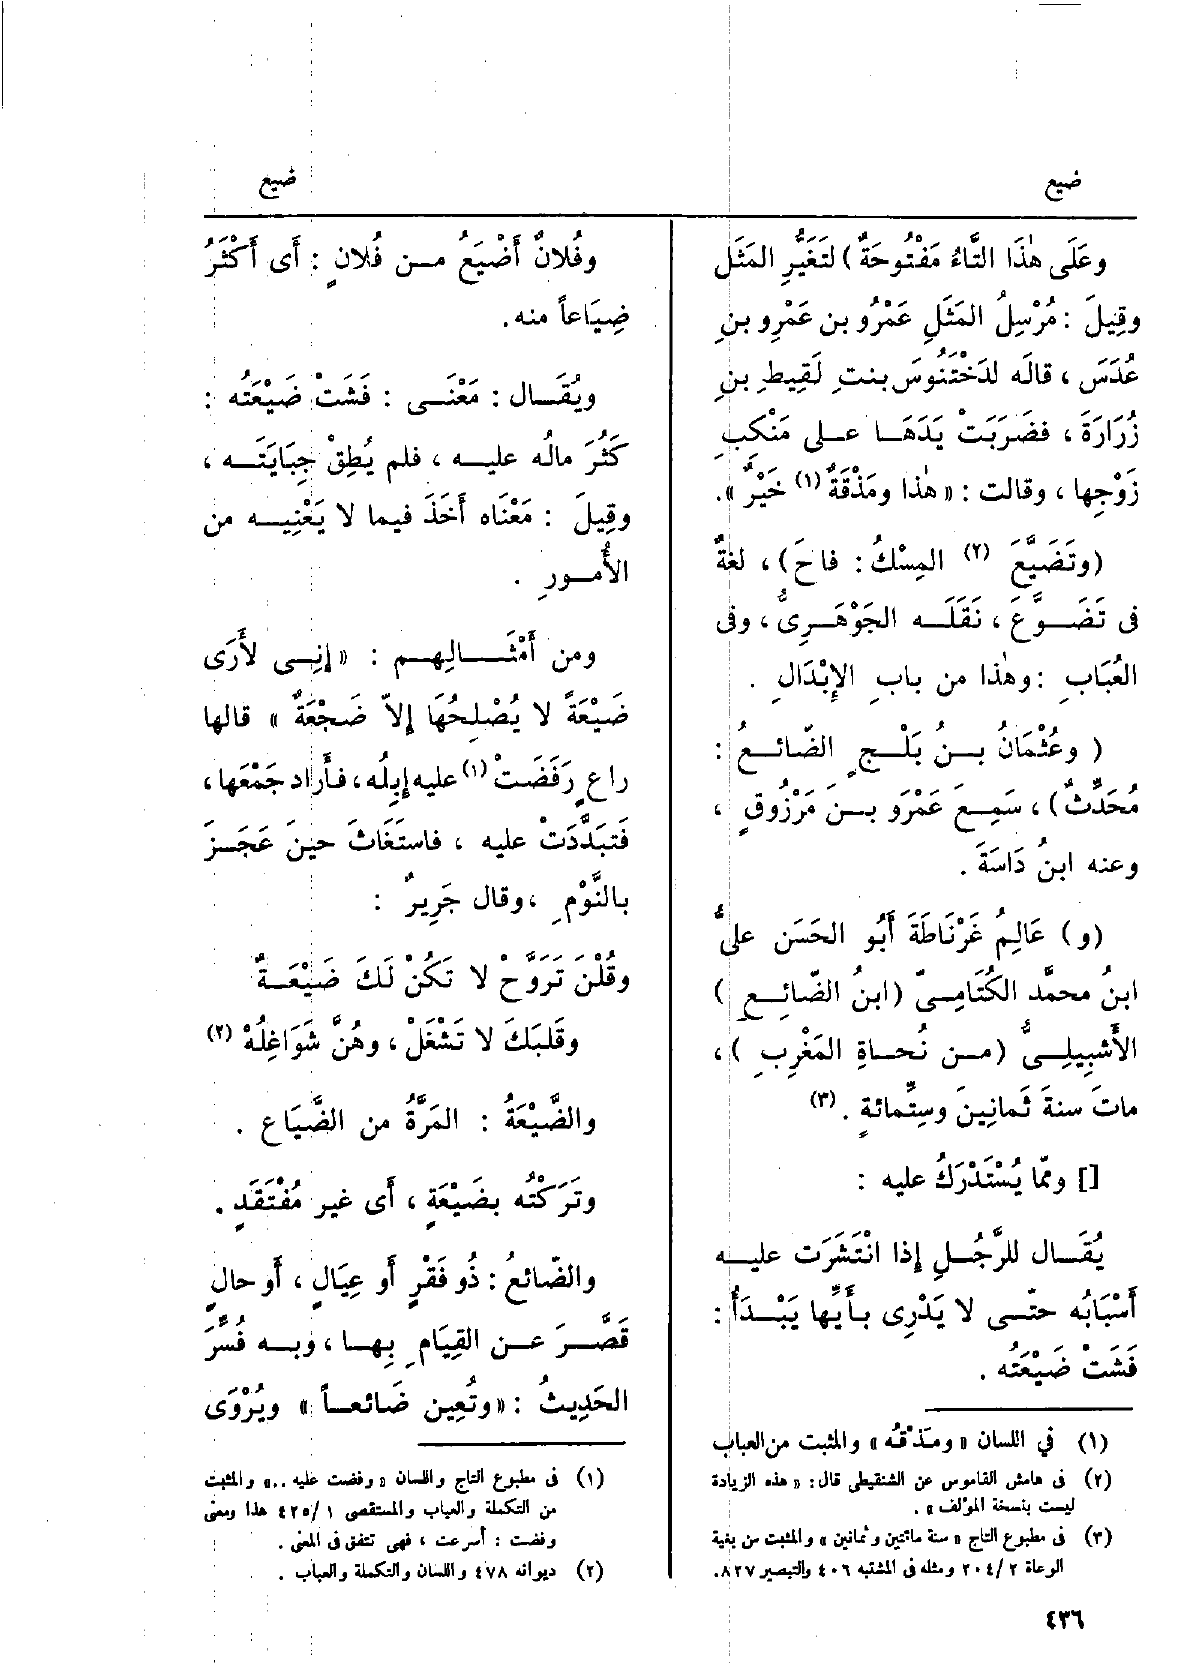 ضيع
ضيع
وعَلَى هٰذَا التَّاءُ مَفْتُوحَةٌ) لتَغَيُّرِ المَثَلِ
وقِيلَ : مُرْسِلُ المَثَلِ عَمْرُو بن عَمْرِو بنِ
عُدَسَ ، قالَه لدَخْتَنُوس بنتِ لَقِيطِ بنِ
زُرَارَةَ ، فضَرَبَتْ يَدَهَا على مَنْكِبِ
زَوْجِها ، وقالت : « هٰذا ومَذْقَةٌ (١) خَيْرٌ ».
(وتَضَيَّعَ (٢) المِسْكُ : فاحَ) ، لغةٌ
فى تَضَوَّعَ ، نَقَلَه الجَوْهَرِىُّ ، وفى
العُبَابِ : وهٰذا من بابِ الإِبْدَالِ .
( وعُثْمَانُ بنُ بَلْجٍ الضّائعُ :
مُحَدِّثٌ) ، سَمِعَ عَمْرَو بنَ مَرْزُوقٍ ،
وعنه ابنُ دَاسَةَ .
(و) عَالِمُ غَرْنَاطَةَ أَبُو الحَسَن علىُّ
ابنُ محمَّد الكُتَامِىّ (ابنُ الضّائعِ )
الأَشبِيلِىُّ (من نُحاةِ المَغْرِبِ ) ،
ماتَ سنةَ ثَمانِينَ وسِتِّمائةٍ . (٣)
[] وممّا يُسْتَدْرَكُ عليه :
يُقَال للرَّجُلِ إذا انْتَشَرَت عليه
أَسْبَابُه حتّى لا يَدْرِى بأَيِّها يَبْدَأُ :
فَشَتْ ضَيْعَتُه .
(١) في اللسان « ومَذْقُه » والمثبت من العباب
(٢) فى هامش القاموس عن الشنقيطى قال : « هذه الزيادة
ليست بنسخة المؤلف » .
(٣) فى مطبوع التاج « سنة مائتين وثمانين » والمثبت من بغية
الوعاة ٢ / ٢٠٤ ومثله فى المشتبه ٤٠٦ والتبصير ٨٢٧.
٤٣٦
وفُلانٌ أَضْيَعُ من فُلانٍ : أَى أَكْثَرُ
ضِيَاعاً منه.
ويُقَال : مَعْنَى : فَشَتْ ضَيْعَتُه :
كَثُرَ مالُه عليه ، فلم يُطِقْ جِبَايَتَه ،
وقِيلَ : مَعْنَاه أَخَذَ فيما لا يَعْنِيه من
الأُمورِ .
ومن أَمْثَالِهم : « إنِى لأَرَى
ضَيْعَةً لا يُصْلِحُهَا إلاّ ضَجْعَةٌ » قالها
راعٍ رَفَضَتْ (١) عليه إبلُه ، فأَراد جَمْعَها ،
فَتَبَدَّدَتْ عليه ، فاستَغَاثَ حينَ عَجَزَ
بالنَّوْمِ ، وقال جَرِيرٌ :
وقُلْنَ تَرَوَّحْ لا تَكُنْ لَكَ ضَيْعَةٌ
وقَلبَكَ لا تَشْغَلْ ، وهُنَّ شَوَاغِلُهْ (٢)
والضَّيْعَةُ : المَرَّةُ من الضَّيَاعِ .
وتَرَكْتُه بضَيْعَةٍ ، أَى غيرِ مُفْتَقَدٍ .
والضّائعُ : ذُو فَقْرٍ أَو عِيَالٍ ، أَو حالٍ
قَصَّرَ عن القِيَامِ بِها ، وبه فُسِّرَ
الحَدِيثُ : « وتُعِين ضَائعاً » ويُرْوَى
(١) فى مطبوع التاج واللسان « رفضت عليه .. » والمثبت
من التكملة والعباب والمستقصى ١ / ٤٢٥ هذا ومعنى
وفضت : أسرعت ، فهى تتفق فى المعنى .
(٢) ديوانه ٤٧٨ واللسان والتكملة والعباب .